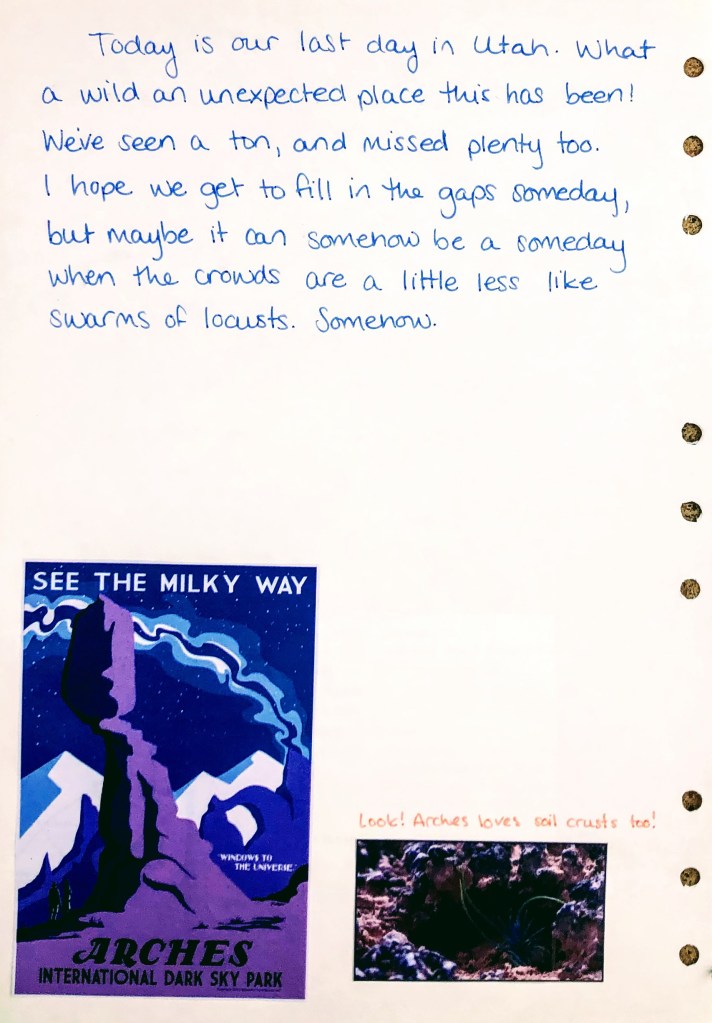 Today is our last day in Utah. What
a wild an unexpected place this has been!
We've seen a ton, and missed plenty too.
I hope we get to fill in the gaps someday,
but maybe it can somehow be a someday
when the crowds are a little less like
swarms of locusts. Somehow.
SEE THE MILKY WAY
"WINDOWS TO
THE UNIVERSE"
ARCHES
INTERNATIONAL DARK SKY PARK
Look! Arches loves soil crusts too!